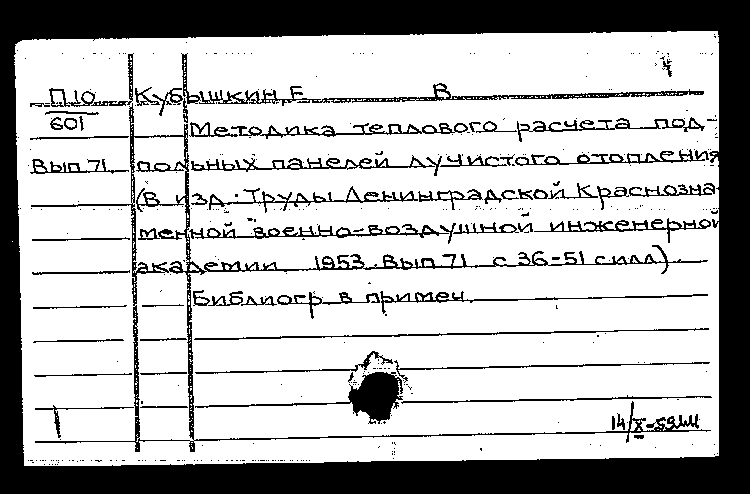 П10 Кубышкин, Е В
601 Методика теплового расчета под-
Вып 71. польных панелей лучистого отопления
(В изд.: Труды Ленинградской Краснозна-
менной военно-воздушной инженерной
академии 1953. Вып 71 с 36-51 с илл).
Библиогр в примеч.
14/X-59